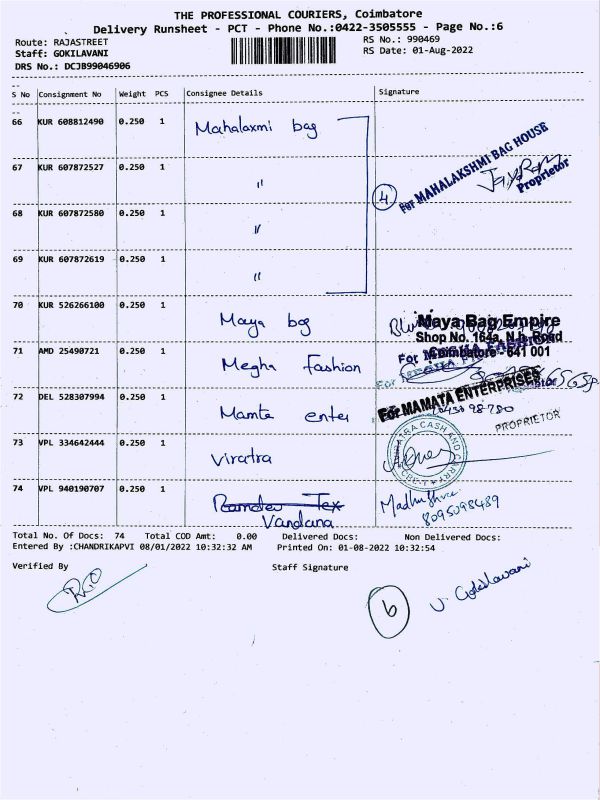 THE PROFESSIONAL COURIERS, Coimbatore
Delivery Runsheet - PCT - Phone No.:0422-3505555 - Page No.:6
Route: RAJASTREET
RS No.: 990469
Staff: GOKILAVANI
RS Date: 01-Aug-2022
DRS No.: DCJB99046906
S No Consignment No Weight PCS Consignee Details Signature
66 KUR 608812490 0.250 1 Mahalaxmi bag
67 KUR 607872527 0.250 1 "
4 For MAHALAKSHMI BAG HOUSE
Proprietor
68 KUR 607872580 0.250 1 "
69 KUR 607872619 0.250 1 "
70 KUR 526266100 0.250 1 Maya bag
Maya Bag Empire
Shop No. 164a, N.h. Road
Coimbatore - 641 001
71 AMD 25490721 0.250 1 Megha Fashion
72 DEL 528307994 0.250 1 Mamta enter
For MAMATA ENTERPRISES
PROPRIETOR
73 VPL 334642444 0.250 1 Viratra
VIRATRA CASH AND CARRY
CBE-1
74 VPL 940190707 0.250 1 Ramdev Tex
Vandana
8095098489
Total No. Of Docs: 74 Total COD Amt: 0.00 Delivered Docs: Non Delivered Docs:
Entered By :CHANDRIKAPVI 08/01/2022 10:32:32 AM Printed On: 01-08-2022 10:32:54
Verified By Staff Signature
6 V. Gokilavani